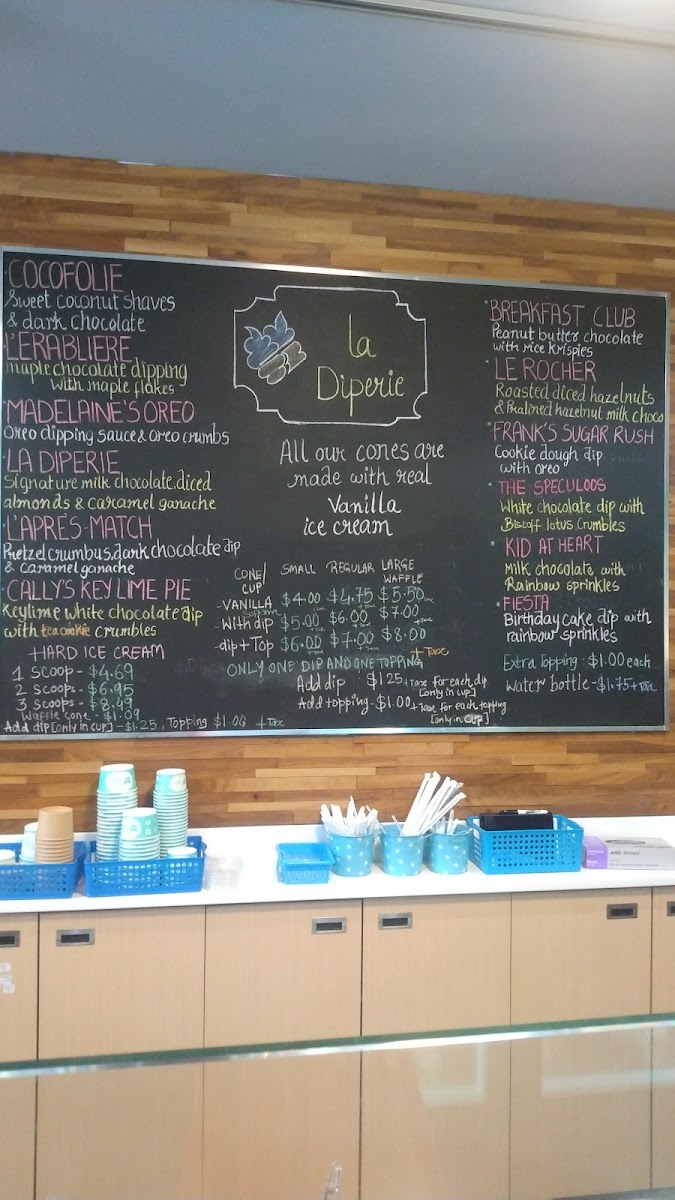 COCOFOLIE
Sweet coconut shaves
& dark chocolate
L'ERABLIERE
maple chocolate dipping
with maple flakes
MADELAINE'S OREO
Oreo dipping sauce & oreo crumbs
LA DIPERIE
Signature milk chocolate, diced
almonds & caramel ganache
L'APRÈS-MATCH
Pretzel crumbus, dark chocolate dip
& caramel ganache
CALLY'S KEY LIME PIE
Keylime white chocolate dip
with tea cookie crumbles
HARD ICE CREAM
1 scoop - $4.69
2 scoops - $6.95
3 scoops - $8.49
Waffle cone - $1.09
Add dip [only in cup] - $1.25, Topping $1.00 + Tax
la
Diperie
All our cones are
made with real
Vanilla
ice cream
CONE/ CUP SMALL REGULAR LARGE WAFFLE
-VANILLA $4.00 $4.75 $5.50
-With dip $5.00 $6.00 $7.00
-dip+Top $6.00 $7.00 $8.00
+ Tax
ONLY ONE DIP AND ONE TOPPING
Add dip $1.25 + Tax for each dip
[only in cup]
Add topping - $1.00 + Tax for each topping
[only in cup]
BREAKFAST CLUB
Peanut butter chocolate
with rice krispies
LE ROCHER
Roasted diced hazelnuts
& Pralined hazelnut milk choco
FRANK'S SUGAR RUSH
Cookie dough dip
with oreo
THE SPECULOOS
White chocolate dip with
Biscoff lotus crumbles
KID AT HEART
Milk chocolate with
Rainbow sprinkles
FIESTA
Birthday cake dip with
rainbow sprinkles
Extra topping - $1.00 each
Water bottle - $1.75 + Tax